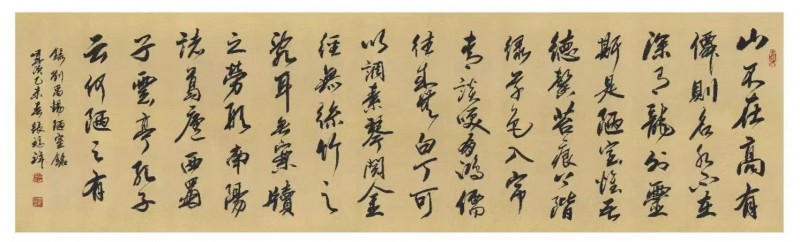 山不在高有
僊則名水不在
深有龍則靈
斯是陋室惟吾
德馨苔痕上階
綠草色入帘
青談笑有鴻儒
往來無白丁可
以調素琴閱金
經無絲竹之
亂耳無案牘
之勞形南陽
諸葛廬西蜀
子雲亭孔子
云何陋之有
錄劉禹錫陋室銘
歲次乙未春張